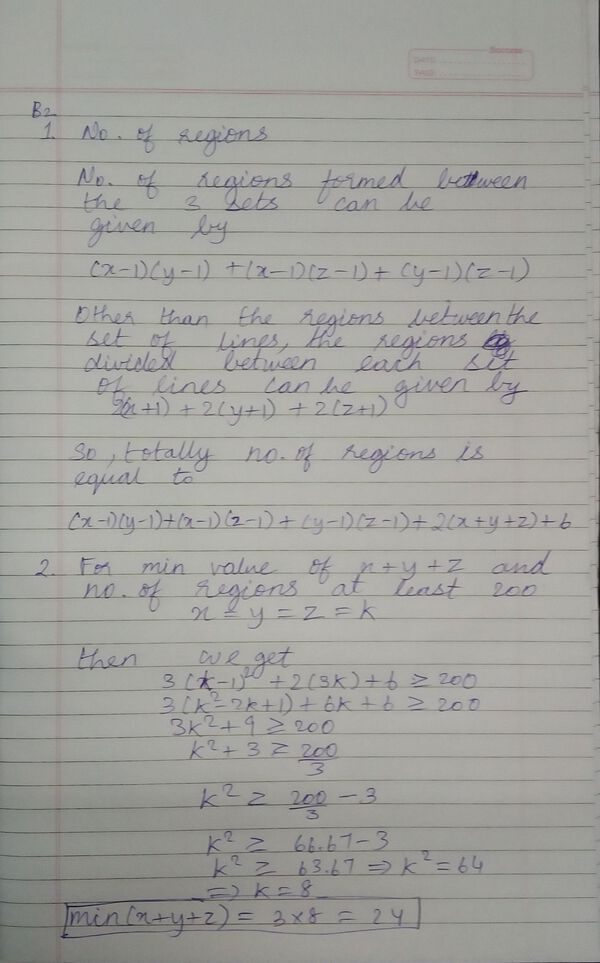 Success
DATE:
PAGE:
B2
1. No. of regions
No. of regions formed between
the 3 sets can be
given by
(x-1)(y-1) + (x-1)(z-1) + (y-1)(z-1)
Other than the regions between the
set of lines, the regions
divided between each set
of lines can be given by
2(x+1) + 2(y+1) + 2(z+1)
So, totally no. of regions is
equal to
(x-1)(y-1)+(x-1)(z-1) + (y-1)(z-1)+2(x+y+z)+6
2. For min value of x+y+z and
no. of regions at least 200
x = y = z = k
then we get
3(k-1)² + 2(3k)+6 ≥ 200
3(k²-2k+1) + 6k + 6 ≥ 200
3k² + 9 ≥ 200
k² + 3 ≥ 200/3
k² ≥ 200/3 - 3
k² ≥ 66.67-3
k² ≥ 63.67 ⇒ k² = 64
⇒ k = 8
min(x+y+z) = 3×8 = 24